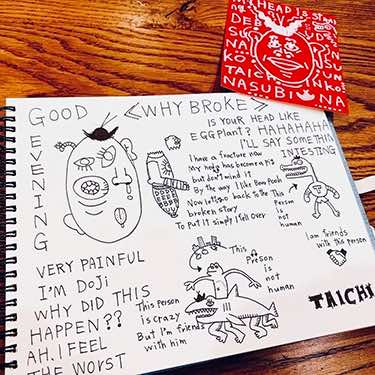 GOOD EVENING
<WHY BROKE>
IS YOUR HEAD LIKE
EGG PLANT? HAHAHAHA
I'LL SAY SOME THAN
INTESTING
I have a fracture now
My head has become a
but don't mind it
By the way I like Been Poob
Now let's go back to the
broken story
To put it simply I fell over
This
person
is
not
human
I am friends
with this person
VERY PAINFUL
I'M DOJI
WHY DID THIS
HAPPEN??
AH. I FEEL
THE WORST
This person
is crazy
But I'm friends
with him
This
person
is
not
human
TAICHI
MY HEAD IS
TAICHI
NASUBI
NA